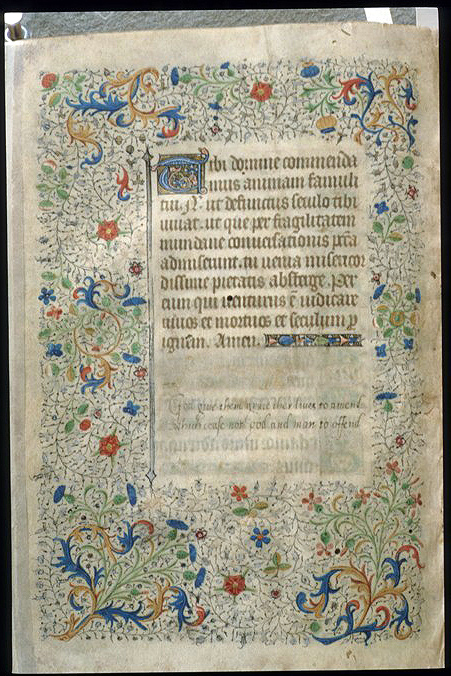 Tibi domine commenda
mus animam famuli
tui. N. ut defunctus seculo tibi
uiuat. ut que per fragilitatem
mundane conuersationis pctā
admiserunt. tu uenia misericor
dissime pietatis absterge. Per
eum qui uenturus ē iudicare
uiuos et mortuos et seculum p
ignem. Amen.
God give them grace ther lives to amend
which cease not god and man to offend